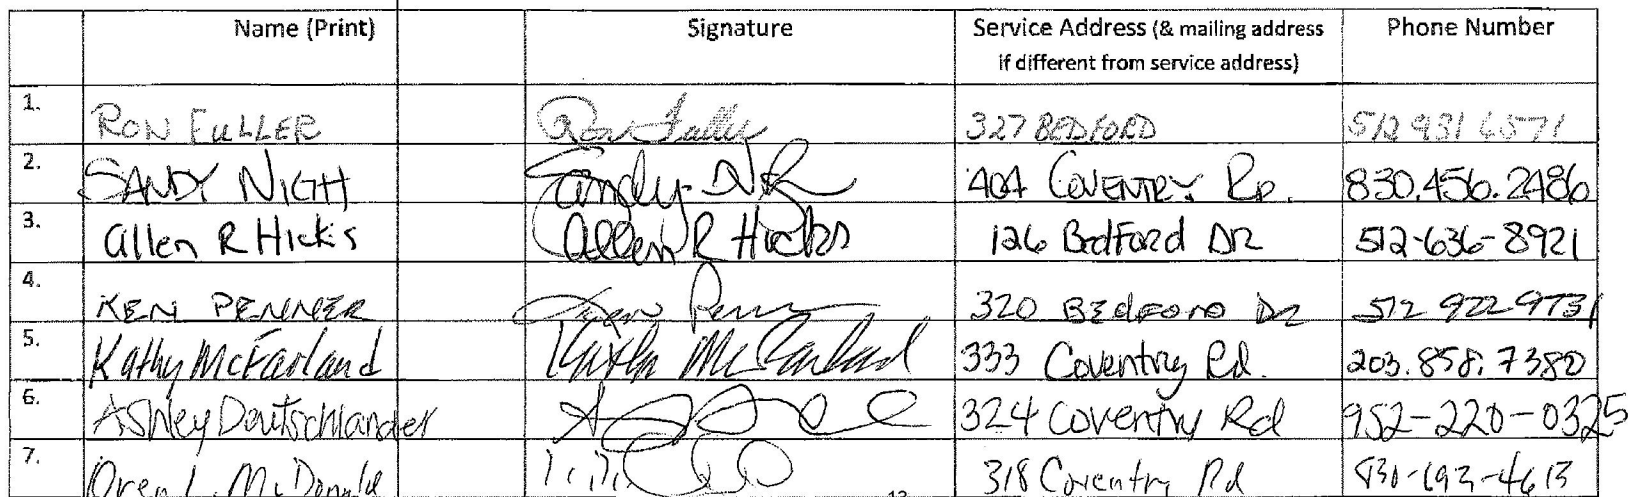 Name (Print) Signature Service Address (& mailing address if different from service address) Phone Number
1. RON FULLER Ron Fuller 327 BEDFORD 512 931 6571
2. SANDY NIGH Sandy Nigh 404 COVENTRY RD. 830.456.2486
3. allen R Hicks allen R Hicks 126 BedFord DR 512-636-8921
4. KEN PENNER Ken Penner 320 BEDFORD DR 512 922 9731
5. Kathy McFarland Kathy McFarland 333 Coventry Rd. 203.858.7380
6. Ashley Deutschlander 324 Coventry Rd 952-220-0325
7. Oren L. McDonald 318 Coventry Rd 830-693-4613